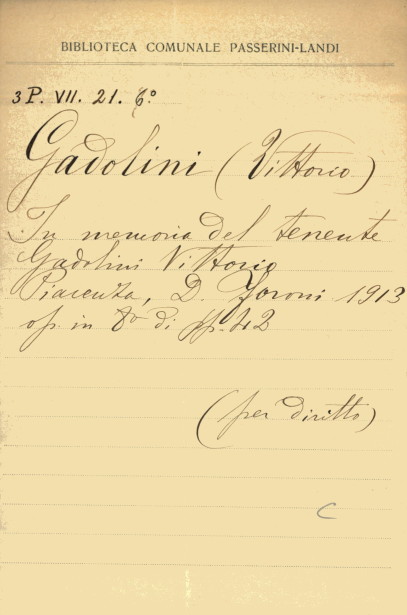 BIBLIOTECA COMUNALE PASSERINI-LANDI
3 P. VII. 21. 6º
Gadolini (Vittorio)
In memoria del tenente
Gadolini Vittorio
Piacenza, D. Foroni 1913
op. in 8º di pp. 42
(per diritto)
C